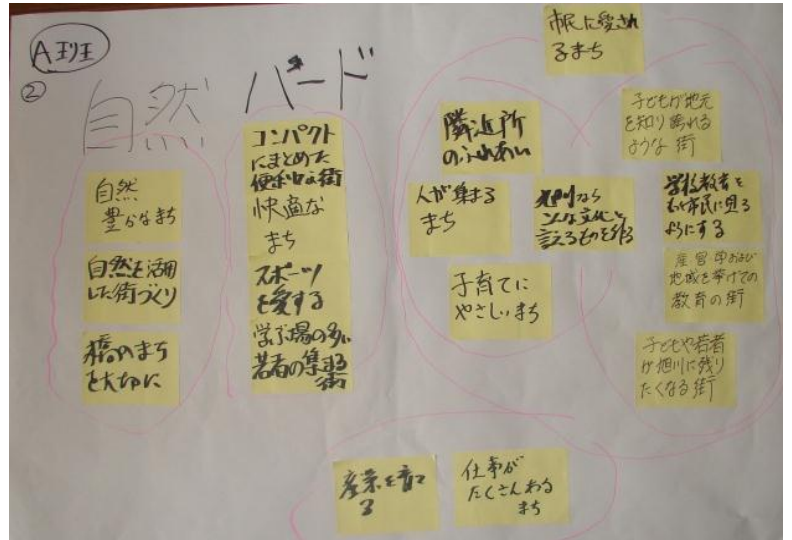 A班
②
自然
ハード
自然
豊かなまち
自然を活用
した街づくり
橋のまち
を大切に
コンパクト
にまとめた
便利な街
快適な
まち
スポーツ
を愛する
学ぶ場の多い
若者の集まる
街
市民に愛され
るまち
隣近所
のふれあい
人が集まる
まち
旭川なら
こんな文化と
言えるものを作る
子育てに
やさしいまち
子どもが地元
を知り誇れる
ような街
学校教育を
もっと市民に見る
ようにする
産・官・学および
地域を挙げての
教育の街
子どもや若者
が旭川に残り
たくなる街
産業を育て
る
仕事が
たくさんある
まち